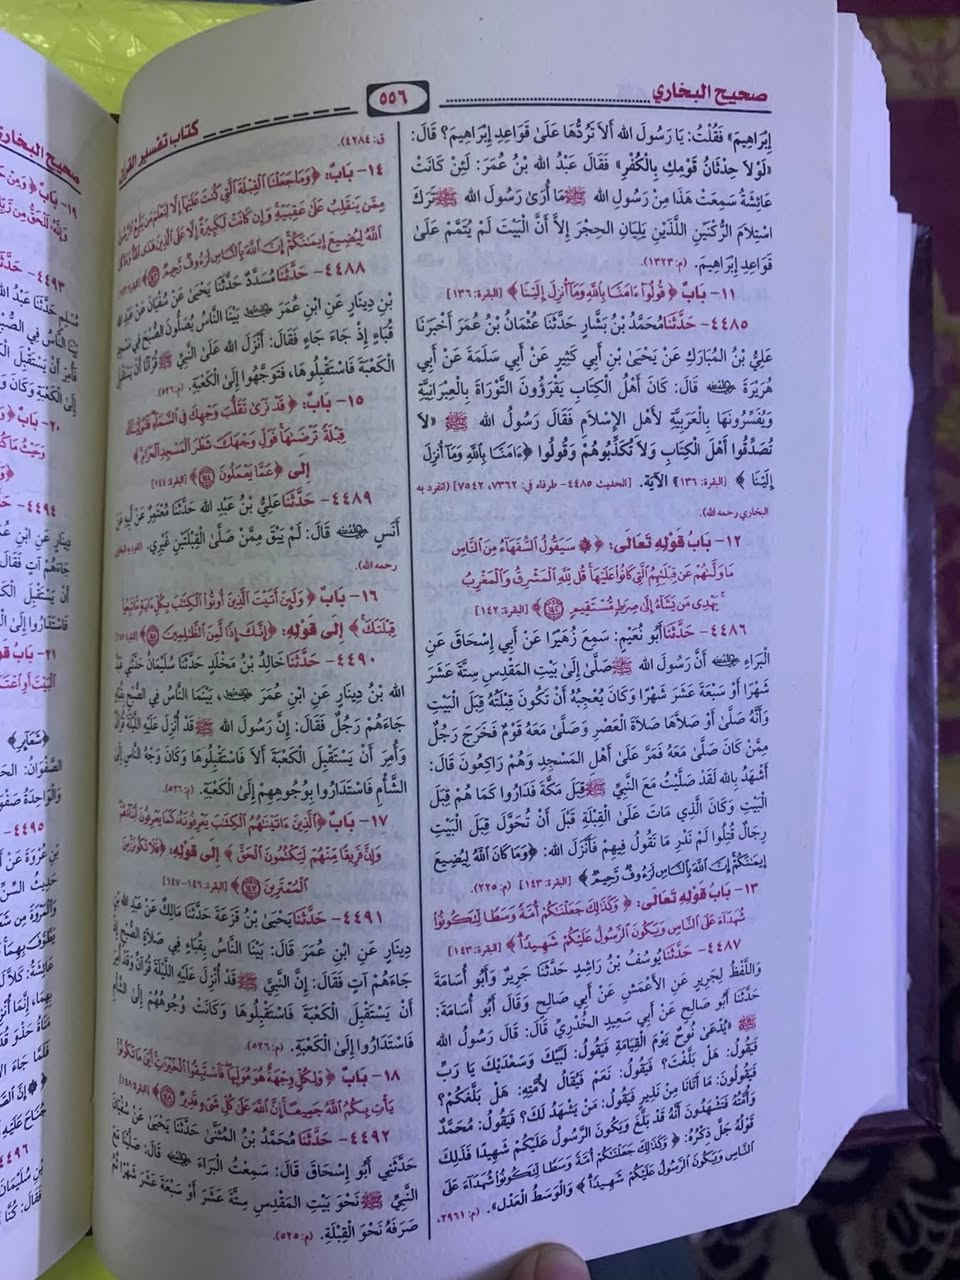 صحيح البخاري
٥٥٦
كتاب تفسير القرآن
إِبْرَاهِيمَ» فَقُلْتُ: يَا رَسُولَ الله أَلَا تَرُدُّهَا عَلَىٰ قَوَاعِدِ إِبْرَاهِيمَ؟ قَالَ:
«لَوْلَا حِدْثَانُ قَوْمِكِ بِالْكُفْرِ» فَقَالَ عَبْدُ الله بْنُ عُمَرَ: لَئِنْ كَانَتْ
عَائِشَةُ سَمِعَتْ هَذَا مِنْ رَسُولِ الله ﷺ مَا أُرَىٰ رَسُولَ الله ﷺ تَرَكَ
اسْتِلَامَ الرُّكْنَيْنِ اللَّذَيْنِ يَلِيَانِ الْحِجْرَ إِلَّا أَنَّ الْبَيْتَ لَمْ يُتَمَّمْ عَلَىٰ
قَوَاعِدِ إِبْرَاهِيمَ. (م: ١٣٢٣).
١١- بَابٌ ﴿قُولُوٓا۟ ءَامَنَّا بِٱللَّهِ وَمَآ أُنزِلَ إِلَيْنَا﴾ [البقرة: ١٣٦]
٤٤٨٥- حَدَّثَنَا مُحَمَّدُ بْنُ بَشَّارٍ حَدَّثَنَا عُثْمَانُ بْنُ عُمَرَ أَخْبَرَنَا
عَلِيُّ بْنُ الْمُبَارَكِ عَنْ يَحْيَىٰ بْنِ أَبِي كَثِيرٍ عَنْ أَبِي سَلَمَةَ عَنْ أَبِي
هُرَيْرَةَ رضي الله عنه قَالَ: كَانَ أَهْلُ الْكِتَابِ يَقْرَؤُونَ التَّوْرَاةَ بِالْعِبْرَانِيَّةِ
وَيُفَسِّرُونَهَا بِالْعَرَبِيَّةِ لِأَهْلِ الإِسْلَامِ فَقَالَ رَسُولُ الله ﷺ «لَا
تُصَدِّقُوا أَهْلَ الْكِتَابِ وَلَا تُكَذِّبُوهُمْ وَقُولُوا ﴿ءَامَنَّا بِٱللَّهِ وَمَآ أُنزِلَ
إِلَيْنَا﴾ [البقرة: ١٣٦] الآيَةَ. [الحديث ٤٤٨٥- طرفاه في: ٧٣٦٢، ٧٥٤٢] (انفرد به
البخاري رحمه الله).
١٢- بَابُ قَوْلِهِ تَعَالَىٰ: ﴿۞ سَيَقُولُ ٱلسُّفَهَآءُ مِنَ ٱلنَّاسِ
مَا وَلَّىٰهُمْ عَن قِبْلَتِهِمُ ٱلَّتِى كَانُوا۟ عَلَيْهَا ۚ قُل لِّلَّهِ ٱلْمَشْرِقُ وَٱلْمَغْرِبُ
يَهْدِى مَن يَشَآءُ إِلَىٰ صِرَٰطٍ مُّسْتَقِيمٍ﴾ [البقرة: ١٤٢]
٤٤٨٦- حَدَّثَنَا أَبُو نُعَيْمٍ: سَمِعَ زُهَيْرًا عَنْ أَبِي إِسْحَاقَ عَنِ
الْبَرَاءِ رضي الله عنه أَنَّ رَسُولَ الله ﷺ صَلَّىٰ إِلَىٰ بَيْتِ الْمَقْدِسِ سِتَّةَ عَشَرَ
شَهْرًا أَوْ سَبْعَةَ عَشَرَ شَهْرًا وَكَانَ يُعْجِبُهُ أَنْ تَكُونَ قِبْلَتُهُ قِبَلَ الْبَيْتِ
وَأَنَّهُ صَلَّىٰ أَوْ صَلَّاهَا صَلَاةَ الْعَصْرِ وَصَلَّىٰ مَعَهُ قَوْمٌ فَخَرَجَ رَجُلٌ
مِمَّنْ كَانَ صَلَّىٰ مَعَهُ فَمَرَّ عَلَىٰ أَهْلِ الْمَسْجِدِ وَهُمْ رَاكِعُونَ قَالَ:
أَشْهَدُ بِالله لَقَدْ صَلَّيْتُ مَعَ النَّبِيِّ ﷺ قِبَلَ مَكَّةَ فَدَارُوا كَمَا هُمْ قِبَلَ
الْبَيْتِ وَكَانَ الَّذِي مَاتَ عَلَىٰ الْقِبْلَةِ قَبْلَ أَنْ تُحَوَّلَ قِبَلَ الْبَيْتِ
رِجَالٌ قُتِلُوا لَمْ نَدْرِ مَا نَقُولُ فِيهِمْ فَأَنْزَلَ الله: ﴿وَمَا كَانَ ٱللَّهُ لِيُضِيعَ
إِيمَٰنَكُمْ ۚ إِنَّ ٱللَّهَ بِٱلنَّاسِ لَرَءُوفٌ رَّحِيمٌ﴾ [البقرة: ١٤٣] (م: ٥٢٥).
١٣- بَابُ قَوْلِهِ تَعَالَىٰ: ﴿وَكَذَٰلِكَ جَعَلْنَٰكُمْ أُمَّةً وَسَطًا لِّتَكُونُوا۟
شُهَدَآءَ عَلَى ٱلنَّاسِ وَيَكُونَ ٱلرَّسُولُ عَلَيْكُمْ شَهِيدًا﴾ [البقرة: ١٤٣]
٤٤٨٧- حَدَّثَنَا يُوسُفُ بْنُ رَاشِدٍ حَدَّثَنَا جَرِيرٌ وَأَبُو أُسَامَةَ
وَاللَّفْظُ لِجَرِيرٍ عَنِ الأَعْمَشِ عَنْ أَبِي صَالِحٍ وَقَالَ أَبُو أُسَامَةَ:
حَدَّثَنَا أَبُو صَالِحٍ عَنْ أَبِي سَعِيدٍ الْخُدْرِيِّ قَالَ: قَالَ رَسُولُ الله
ﷺ «يُدْعَىٰ نُوحٌ يَوْمَ الْقِيَامَةِ فَيَقُولُ: لَبَّيْكَ وَسَعْدَيْكَ يَا رَبِّ
فَيَقُولُ: هَلْ بَلَّغْتَ؟ فَيَقُولُ: نَعَمْ فَيُقَالُ لِأُمَّتِهِ: هَلْ بَلَّغَكُمْ؟
فَيَقُولُونَ: مَا أَتَانَا مِنْ نَذِيرٍ فَيَقُولُ: مَنْ يَشْهَدُ لَكَ؟ فَيَقُولُ: مُحَمَّدٌ
وَأُمَّتُهُ فَتَشْهَدُونَ أَنَّهُ قَدْ بَلَّغَ وَيَكُونَ الرَّسُولُ عَلَيْكُمْ شَهِيدًا فَذَلِكَ
قَوْلُهُ جَلَّ ذِكْرُهُ: ﴿وَكَذَٰلِكَ جَعَلْنَٰكُمْ أُمَّةً وَسَطًا لِّتَكُونُوا۟ شُهَدَآءَ عَلَى
ٱلنَّاسِ وَيَكُونَ ٱلرَّسُولُ عَلَيْكُمْ شَهِيدًا﴾ وَالْوَسَطُ الْعَدْلُ». (م: ٢٩٦١،
ق: ٤٢٨٤).
١٤- بَابٌ: ﴿وَمَا جَعَلْنَا ٱلْقِبْلَةَ ٱلَّتِى كُنتَ عَلَيْهَآ إِلَّا لِنَعْلَمَ مَن يَتَّبِعُ ٱلرَّسُولَ
مِمَّن يَنقَلِبُ عَلَىٰ عَقِبَيْهِ ۚ وَإِن كَانَتْ لَكَبِيرَةً إِلَّا عَلَى ٱلَّذِينَ هَدَى ٱللَّهُ ۗ وَمَا كَانَ
ٱللَّهُ لِيُضِيعَ إِيمَٰنَكُمْ ۚ إِنَّ ٱللَّهَ بِٱلنَّاسِ لَرَءُوفٌ رَّحِيمٌ﴾ [البقرة: ١٤٣]
٤٤٨٨- حَدَّثَنَا مُسَدَّدٌ حَدَّثَنَا يَحْيَىٰ عَنْ سُفْيَانَ عَنْ عَبْدِ الله
بْنِ دِينَارٍ عَنِ ابْنِ عُمَرَ بَيْنَا النَّاسُ يُصَلُّونَ الصُّبْحَ فِي مَسْجِدِ
قُبَاءٍ إِذْ جَاءَ جَاءٍ فَقَالَ: أَنْزَلَ الله عَلَىٰ النَّبِيِّ ﷺ قُرْآنًا أَنْ يَسْتَقْبِلَ
الْكَعْبَةَ فَاسْتَقْبِلُوهَا، فَتَوَجَّهُوا إِلَىٰ الْكَعْبَةِ. (م: ٥٢٦).
١٥- بَابٌ: ﴿قَدْ نَرَىٰ تَقَلُّبَ وَجْهِكَ فِى ٱلسَّمَآءِ ۖ فَلَنُوَلِّيَنَّكَ
قِبْلَةً تَرْضَىٰهَا ۚ فَوَلِّ وَجْهَكَ شَطْرَ ٱلْمَسْجِدِ ٱلْحَرَامِ﴾
إِلَى ﴿عَمَّا يَعْمَلُونَ﴾ [البقرة: ١٤٤]
٤٤٨٩- حَدَّثَنَا عَلِيُّ بْنُ عَبْدِ الله حَدَّثَنَا مُعْتَمِرٌ عَنْ أَبِيهِ عَنْ
أَنَسٍ رضي الله عنه قَالَ: لَمْ يَبْقَ مِمَّنْ صَلَّىٰ الْقِبْلَتَيْنِ غَيْرِي. (انفرد به البخاري
رحمه الله).
١٦- بَابٌ: ﴿وَلَئِنْ أَتَيْتَ ٱلَّذِينَ أُوتُوا۟ ٱلْكِتَٰبَ بِكُلِّ ءَايَةٍ مَّا تَبِعُوا۟
قِبْلَتَكَ﴾ إِلَى قَوْلِهِ: ﴿إِنَّكَ إِذًا لَّمِنَ ٱلظَّٰلِمِينَ﴾
٤٤٩٠- حَدَّثَنَا خَالِدُ بْنُ مَخْلَدٍ حَدَّثَنَا سُلَيْمَانُ حَدَّثَنِي عَبْدُ
الله بْنُ دِينَارٍ عَنِ ابْنِ عُمَرَ، بَيْنَمَا النَّاسُ فِي الصُّبْحِ بِقُبَاءٍ
جَاءَهُمْ رَجُلٌ فَقَالَ: إِنَّ رَسُولَ الله ﷺ قَدْ أُنْزِلَ عَلَيْهِ اللَّيْلَةَ قُرْآنٌ
وَأُمِرَ أَنْ يَسْتَقْبِلَ الْكَعْبَةَ أَلَا فَاسْتَقْبِلُوهَا وَكَانَ وَجْهُ النَّاسِ إِلَىٰ
الشَّأْمِ فَاسْتَدَارُوا بِوُجُوهِهِمْ إِلَىٰ الْكَعْبَةِ. (م: ٥٢٦).
١٧- بَابٌ ﴿ٱلَّذِينَ ءَاتَيْنَٰهُمُ ٱلْكِتَٰبَ يَعْرِفُونَهُۥ كَمَا يَعْرِفُونَ أَبْنَآءَهُمْ
وَإِنَّ فَرِيقًا مِّنْهُمْ لَيَكْتُمُونَ ٱلْحَقَّ﴾ إِلَى قَوْلِهِ: ﴿فَلَا تَكُونَنَّ مِنَ
ٱلْمُمْتَرِينَ﴾ [البقرة: ١٤٦-١٤٧]
٤٤٩١- حَدَّثَنَا يَحْيَىٰ بْنُ قَزَعَةَ حَدَّثَنَا مَالِكٌ عَنْ عَبْدِ الله بْنِ
دِينَارٍ عَنِ ابْنِ عُمَرَ قَالَ: بَيْنَا النَّاسُ بِقُبَاءٍ فِي صَلَاةِ الصُّبْحِ إِذْ
جَاءَهُمْ آتٍ فَقَالَ: إِنَّ النَّبِيَّ ﷺ قَدْ أُنْزِلَ عَلَيْهِ اللَّيْلَةَ قُرْآنٌ وَقَدْ أُمِرَ
أَنْ يَسْتَقْبِلَ الْكَعْبَةَ فَاسْتَقْبِلُوهَا وَكَانَتْ وُجُوهُهُمْ إِلَىٰ الشَّأْمِ
فَاسْتَدَارُوا إِلَىٰ الْكَعْبَةِ. (م: ٥٢٦).
١٨- بَابٌ ﴿وَلِكُلٍّ وِجْهَةٌ هُوَ مُوَلِّيهَا ۖ فَٱسْتَبِقُوا۟ ٱلْخَيْرَٰتِ ۚ أَيْنَ مَا تَكُونُوا۟
يَأْتِ بِكُمُ ٱللَّهُ جَمِيعًا ۚ إِنَّ ٱللَّهَ عَلَىٰ كُلِّ شَىْءٍ قَدِيرٌ﴾ [البقرة: ١٤٨]
٤٤٩٢- حَدَّثَنَا مُحَمَّدُ بْنُ الْمُثَنَّىٰ حَدَّثَنَا يَحْيَىٰ عَنْ سُفْيَانَ
حَدَّثَنِي أَبُو إِسْحَاقَ قَالَ: سَمِعْتُ الْبَرَاءَ رضي الله عنه قَالَ: صَلَّيْنَا مَعَ
النَّبِيِّ ﷺ نَحْوَ بَيْتِ الْمَقْدِسِ سِتَّةَ عَشَرَ أَوْ سَبْعَةَ عَشَرَ شَهْرًا ثُمَّ
صَرَفَهُ نَحْوَ الْقِبْلَةِ. (م: ٥٢٥).
صحيح البخاري
١٩- بَابٌ
٤٤٩٣- حَدَّثَنَا
٢٠- بَابٌ
٤٤٩٤-
٢١- بَابُ
الصَّفْوَانُ:
٤٤٩٥-
٤٤٩٦